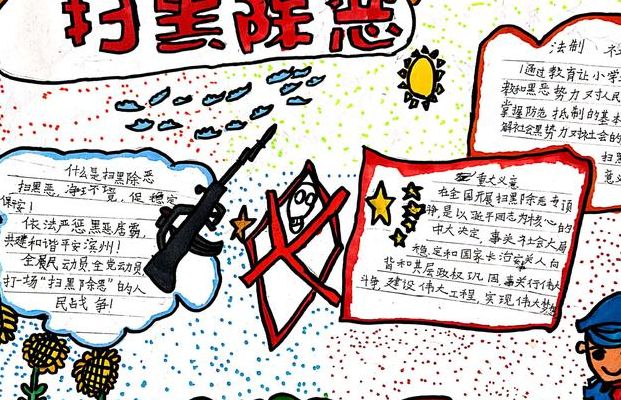 扫黑除恶
什么是扫黑除恶
扫黑恶,净环境,促稳定
保安!
依法严惩黑恶店霸,
共建和谐平安滨州!
全民动员,全党动员
打一场“扫黑除恶”的人
民战争!
重大义意
在全国开展扫黑除恶专项
争是以近平同志为核心的
中大决定,事关社会大局
稳定和国家长治安关人向
背和共层政权巩固,事关行伟大
斗争,建设伟大工程,实现伟大梦想
法制
1通过教育让小学生
教和黑恶势力对人民
掌握防范抵制的基本
解社会黑势力对社会的
扫黑
意义